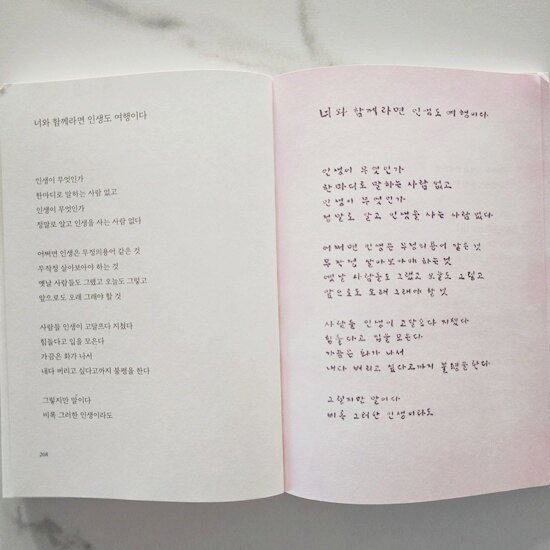 너와 함께라면 인생도 여행이다
인생이 무엇인가
한마디로 말하는 사람 없고
인생이 무엇인가
정말로 알고 인생을 사는 사람 없다
어쩌면 인생은 무정의용어 같은 것
무작정 살아보아야 하는 것
옛날 사람들도 그랬고 오늘도 그렇고
앞으로도 오래 그래야 할 것
사람들 인생이 고달프다 지쳤다
힘들다고 입을 모은다
가끔은 화가 나서
내다 버리고 싶다고까지 불평을 한다
그렇지만 말이다
비록 그러한 인생이라도
208
너와 함께라면 인생도 여행이다
인생이 무엇인가
한마디로 말하는 사람 없고
인생이 무엇인가
정말로 알고 인생을 사는 사람 없다
어쩌면 인생은 무정의용어 같은 것
무작정 살아보아야 하는 것
옛날 사람들도 그랬고 오늘도 그렇고
앞으로도 오래 그래야 할 것
사람들 인생이 고달프다 지쳤다
힘들다고 입을 모은다
가끔은 화가 나서
내다 버리고 싶다고까지 불평을 한다
그렇지만 말이다
비록 그러한 인생이라도